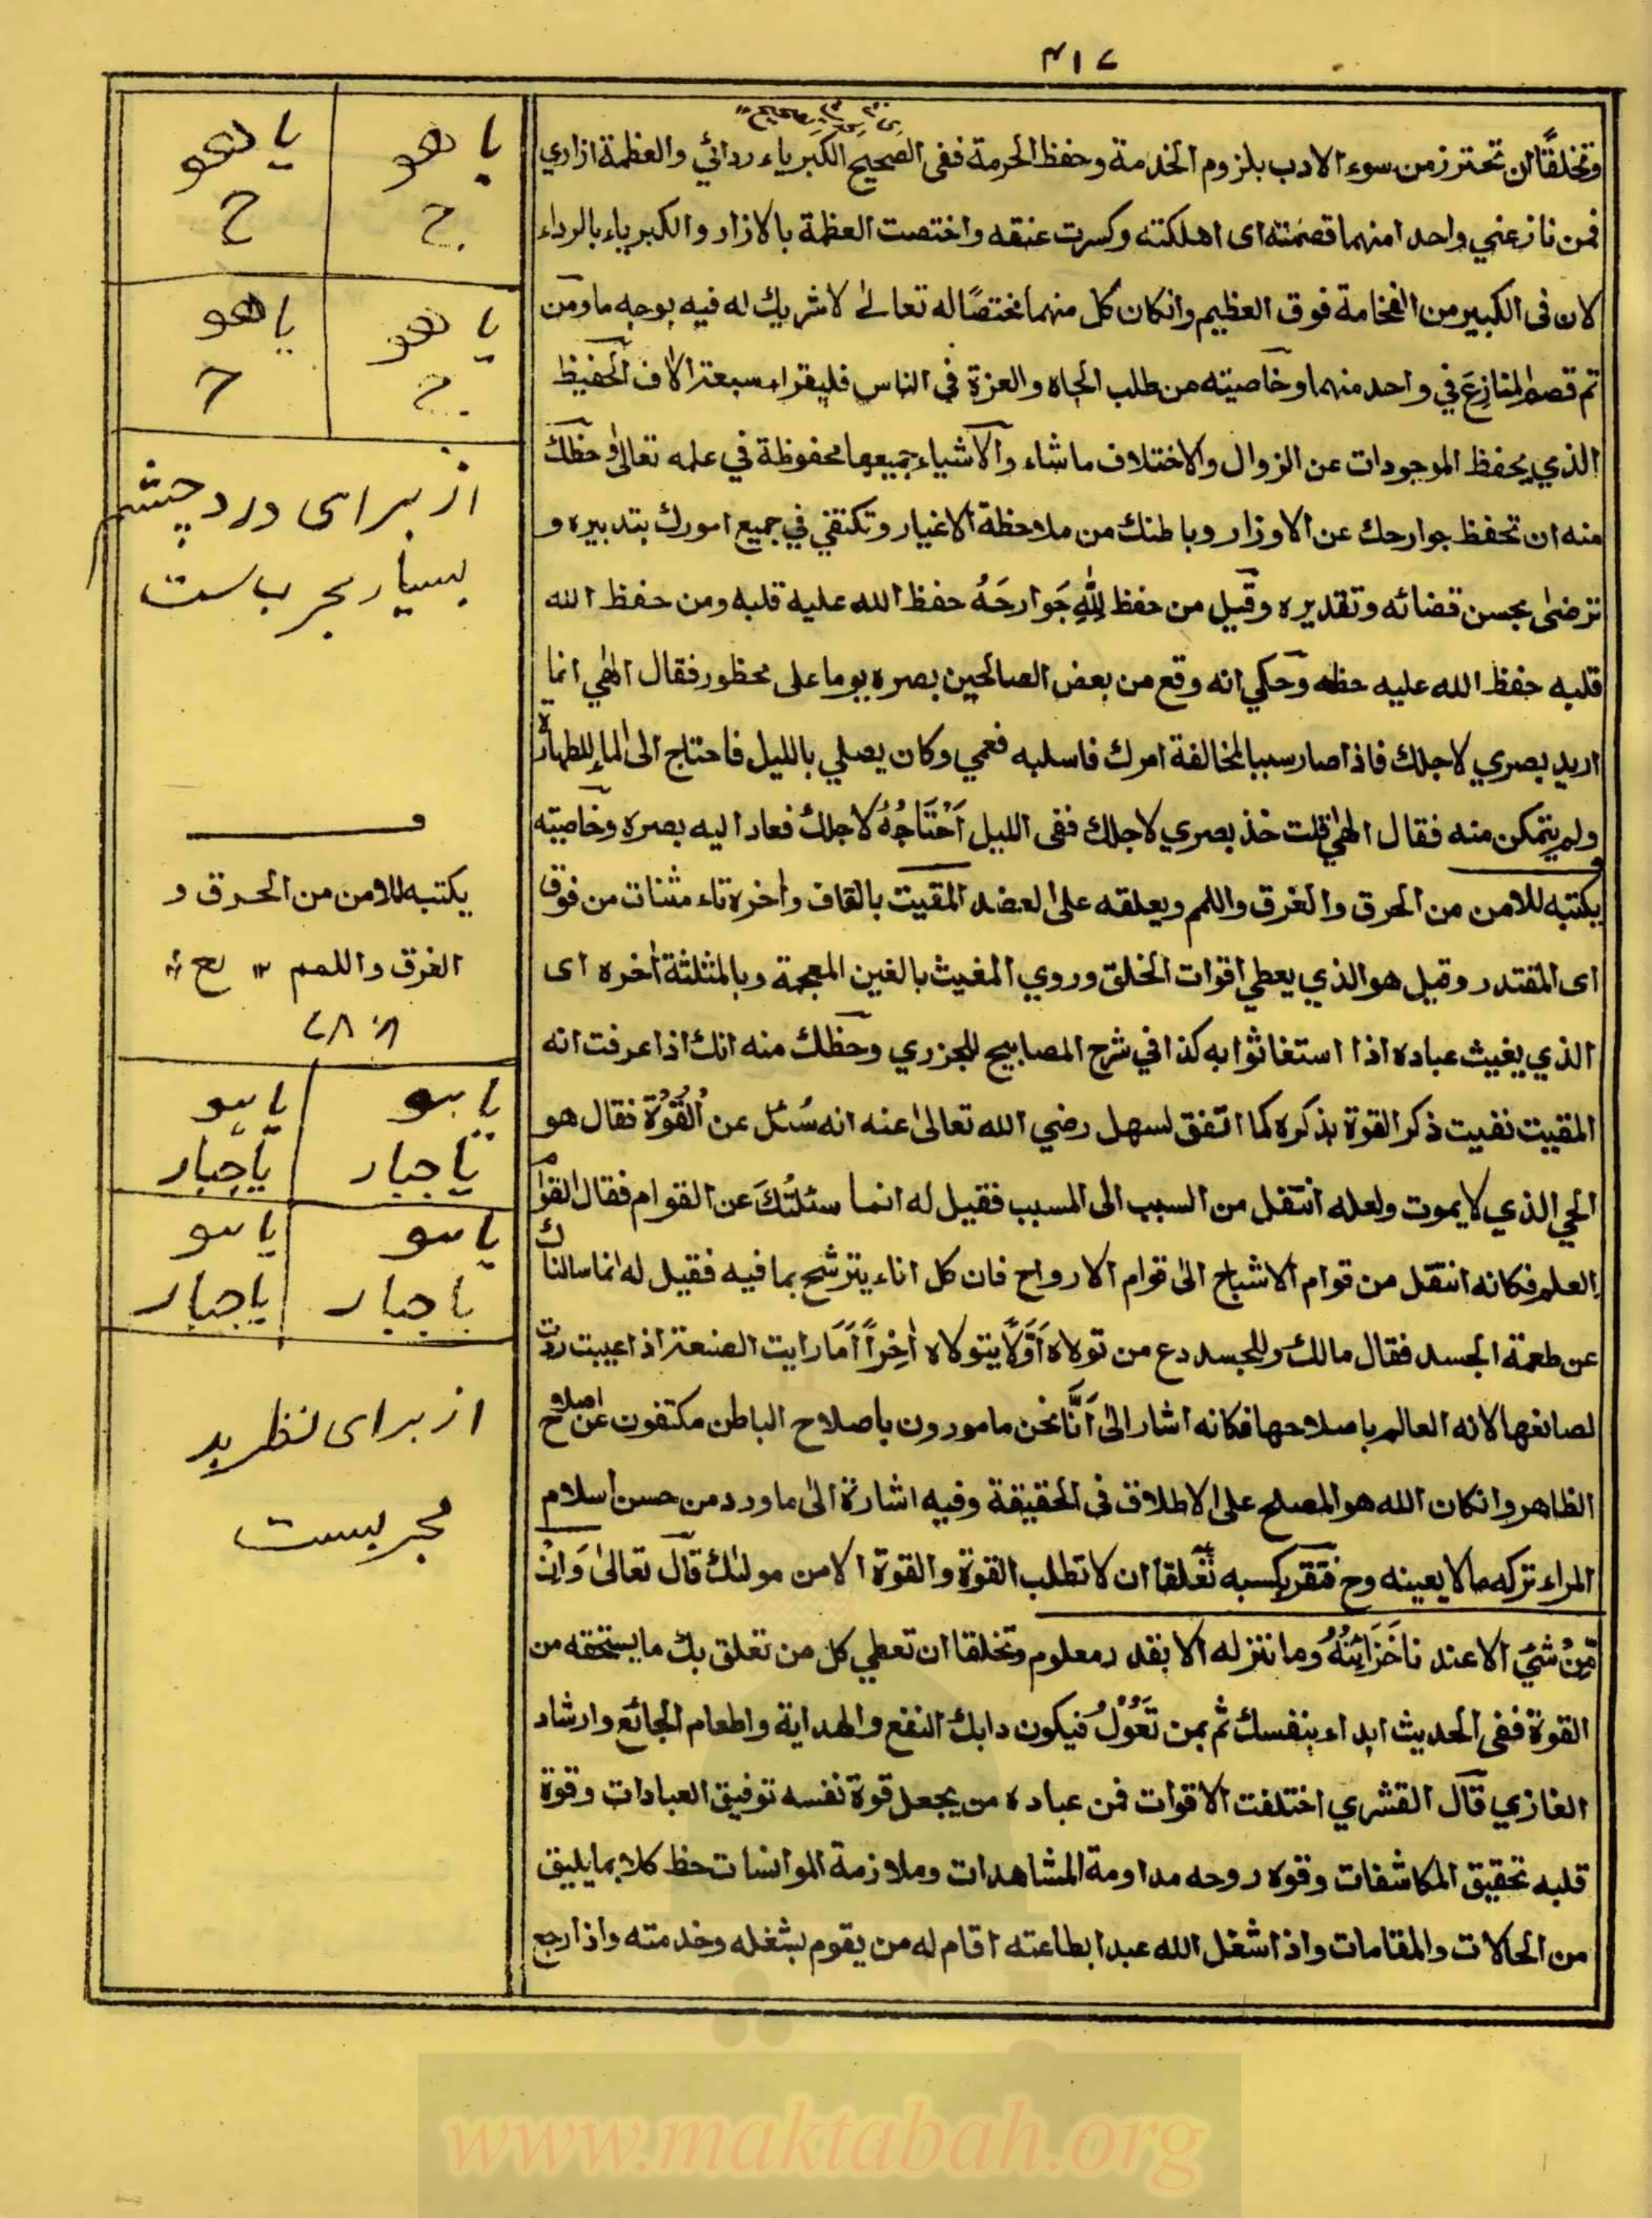 ٣١٧
وتخلقًا ان تحترز من سوء الادب بلزوم الخدمة وحفظ الحرمة ففى الصحيح الكبرياء ردائي والعظمة ازاري
فمن نازعني واحدا منهما قصمته اى اهلكته وكسرت عنقه واختصت العظمة بالازار والكبرياء بالرداء
لان فى الكبير من الفخامة فوق العظيم وانكان كل منهما مختصًا له تعالى لا شريك له فيه بوجه ما ومن
ثم قصم المنازع في واحد منهما وخاصيته من طلب الجاه والعزة في الناس فليقراء سبعة الاف الحفيظ
الذي يحفظ الموجودات عن الزوال والاختلاف ماشاء والاشياء جميعها محفوظة في علمه تعالى وحظك
منه ان تحفظ جوارحك عن الاوزار وباطنك من ملاحظة الاغيار وتكتفي في جميع امورك بتدبيره و
ترضى بحسن قضائه وتقديره وقيل من حفظ لِلّٰهِ جَوارحَهُ حفظ الله عليه قلبه ومن حفظ الله
قلبه حفظ الله عليه حظه وحكي انه وقع من بعض الصالحين بصره يوما على محظور فقال الهي انما
اريد بصري لاجلك فاذا صار سببا لمخالفة امرك فاسلبه فعمي وكان يصلي بالليل فاحتاج الى الماء للطهارة
ولم يتمكن منه فقال الهي قلت خذ بصري لاجلك ففى الليل اَحْتَاجُهُ لاجلك فعاد اليه بصره وخاصيته
يكتبه للامن من الحرق والغرق واللمم ويعلقه على العضد المقيت بالقاف واخره تاء مثنات من فوق
اى المقتدر وقيل هو الذي يعطي اقوات الخلق وروي المغيث بالغين المعجمة وبالمثلثة اخره اى
الذي يغيث عباده اذا استغاثوا به كذا في شرح المصابيح للجزري وحظك منه انك اذا عرفت انه
المقيت نفيت ذكر القوة بذكره كما اتفق لسهل رضي الله تعالى عنه انه سُئل عن القُوْة فقال هو
الحي الذي لا يموت ولعله انتقل من السبب الى المسبب فقيل له انما سئلتُكَ عن القوام فقال القوام
العلم فكانه انتقل من قوام الاشباح الى قوام الارواح فان كل اناء يترشح بما فيه فقيل له انما سالناك
عن طعمة الجسد فقال مالك وللجسد دع من تولاه اَوَّلًا يتولاه اٰخِراً اَمَا رايت الصنعة اذا عيبت ردت
لصانعها لانه العالم باصلاحها فكانه اشار الى اَنَّا نحن مامورون باصلاح الباطن مكتفون عن اصلاح
الظاهر وانكان الله هو المصلح على الاطلاق فى الحقيقة وفيه اشارة الى ما ورد من حسن اسلام
المراء تركه ما لا يعينه وح فتقربكسبه تعلقا ان لا تطلب القوة والقوة الا من مولٰك قال تعالى وَاِنْ
مِّنْ شَيْ الا عند ناخَزَائِنُهُ وما ننزله الا بقدر معلوم وتخلقا ان تعطي كل من تعلق بك ما يستحقه من
القوة ففى الحديث ابداء بنفسك ثم بمن تَعُوْلُ فيكون دابك النفع والهداية واطعام الجائع وارشاد
الغازي قال القشري اختلفت الاقوات فمن عباده من يجعل قوة نفسه توفيق العبادات وقوة
قلبه تحقيق المكاشفات وقوه روحه مداومة المشاهدات وملازمة الموانسات حظ كلا بما يليق
من الحالات والمقامات واذا شغل الله عبدا بطاعته اقام له من يقوم بشغله وخدمته واذا رجع
يا هو يا هو
ح ح
يا هو يا هو
ح ح
از براى درد چشم
بسيار مجرب ست
يكتبه للامن من الحرق و
الغرق واللمم ١٢
يا هو يا هو
يا جبار يا جبار
يا هو يا هو
يا جبار يا جبار
از براى نظر بد
مجربست
www.maktabah.org